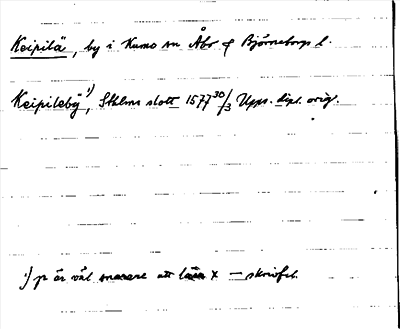 Keipilä, by i Kumo sn Åbo o Björneborgs l.
Keipileby¹), Sthlms slott 1577 30/3 Upps. dipl. orig.
¹) p är väl snarare att läsa x — skrivfel.